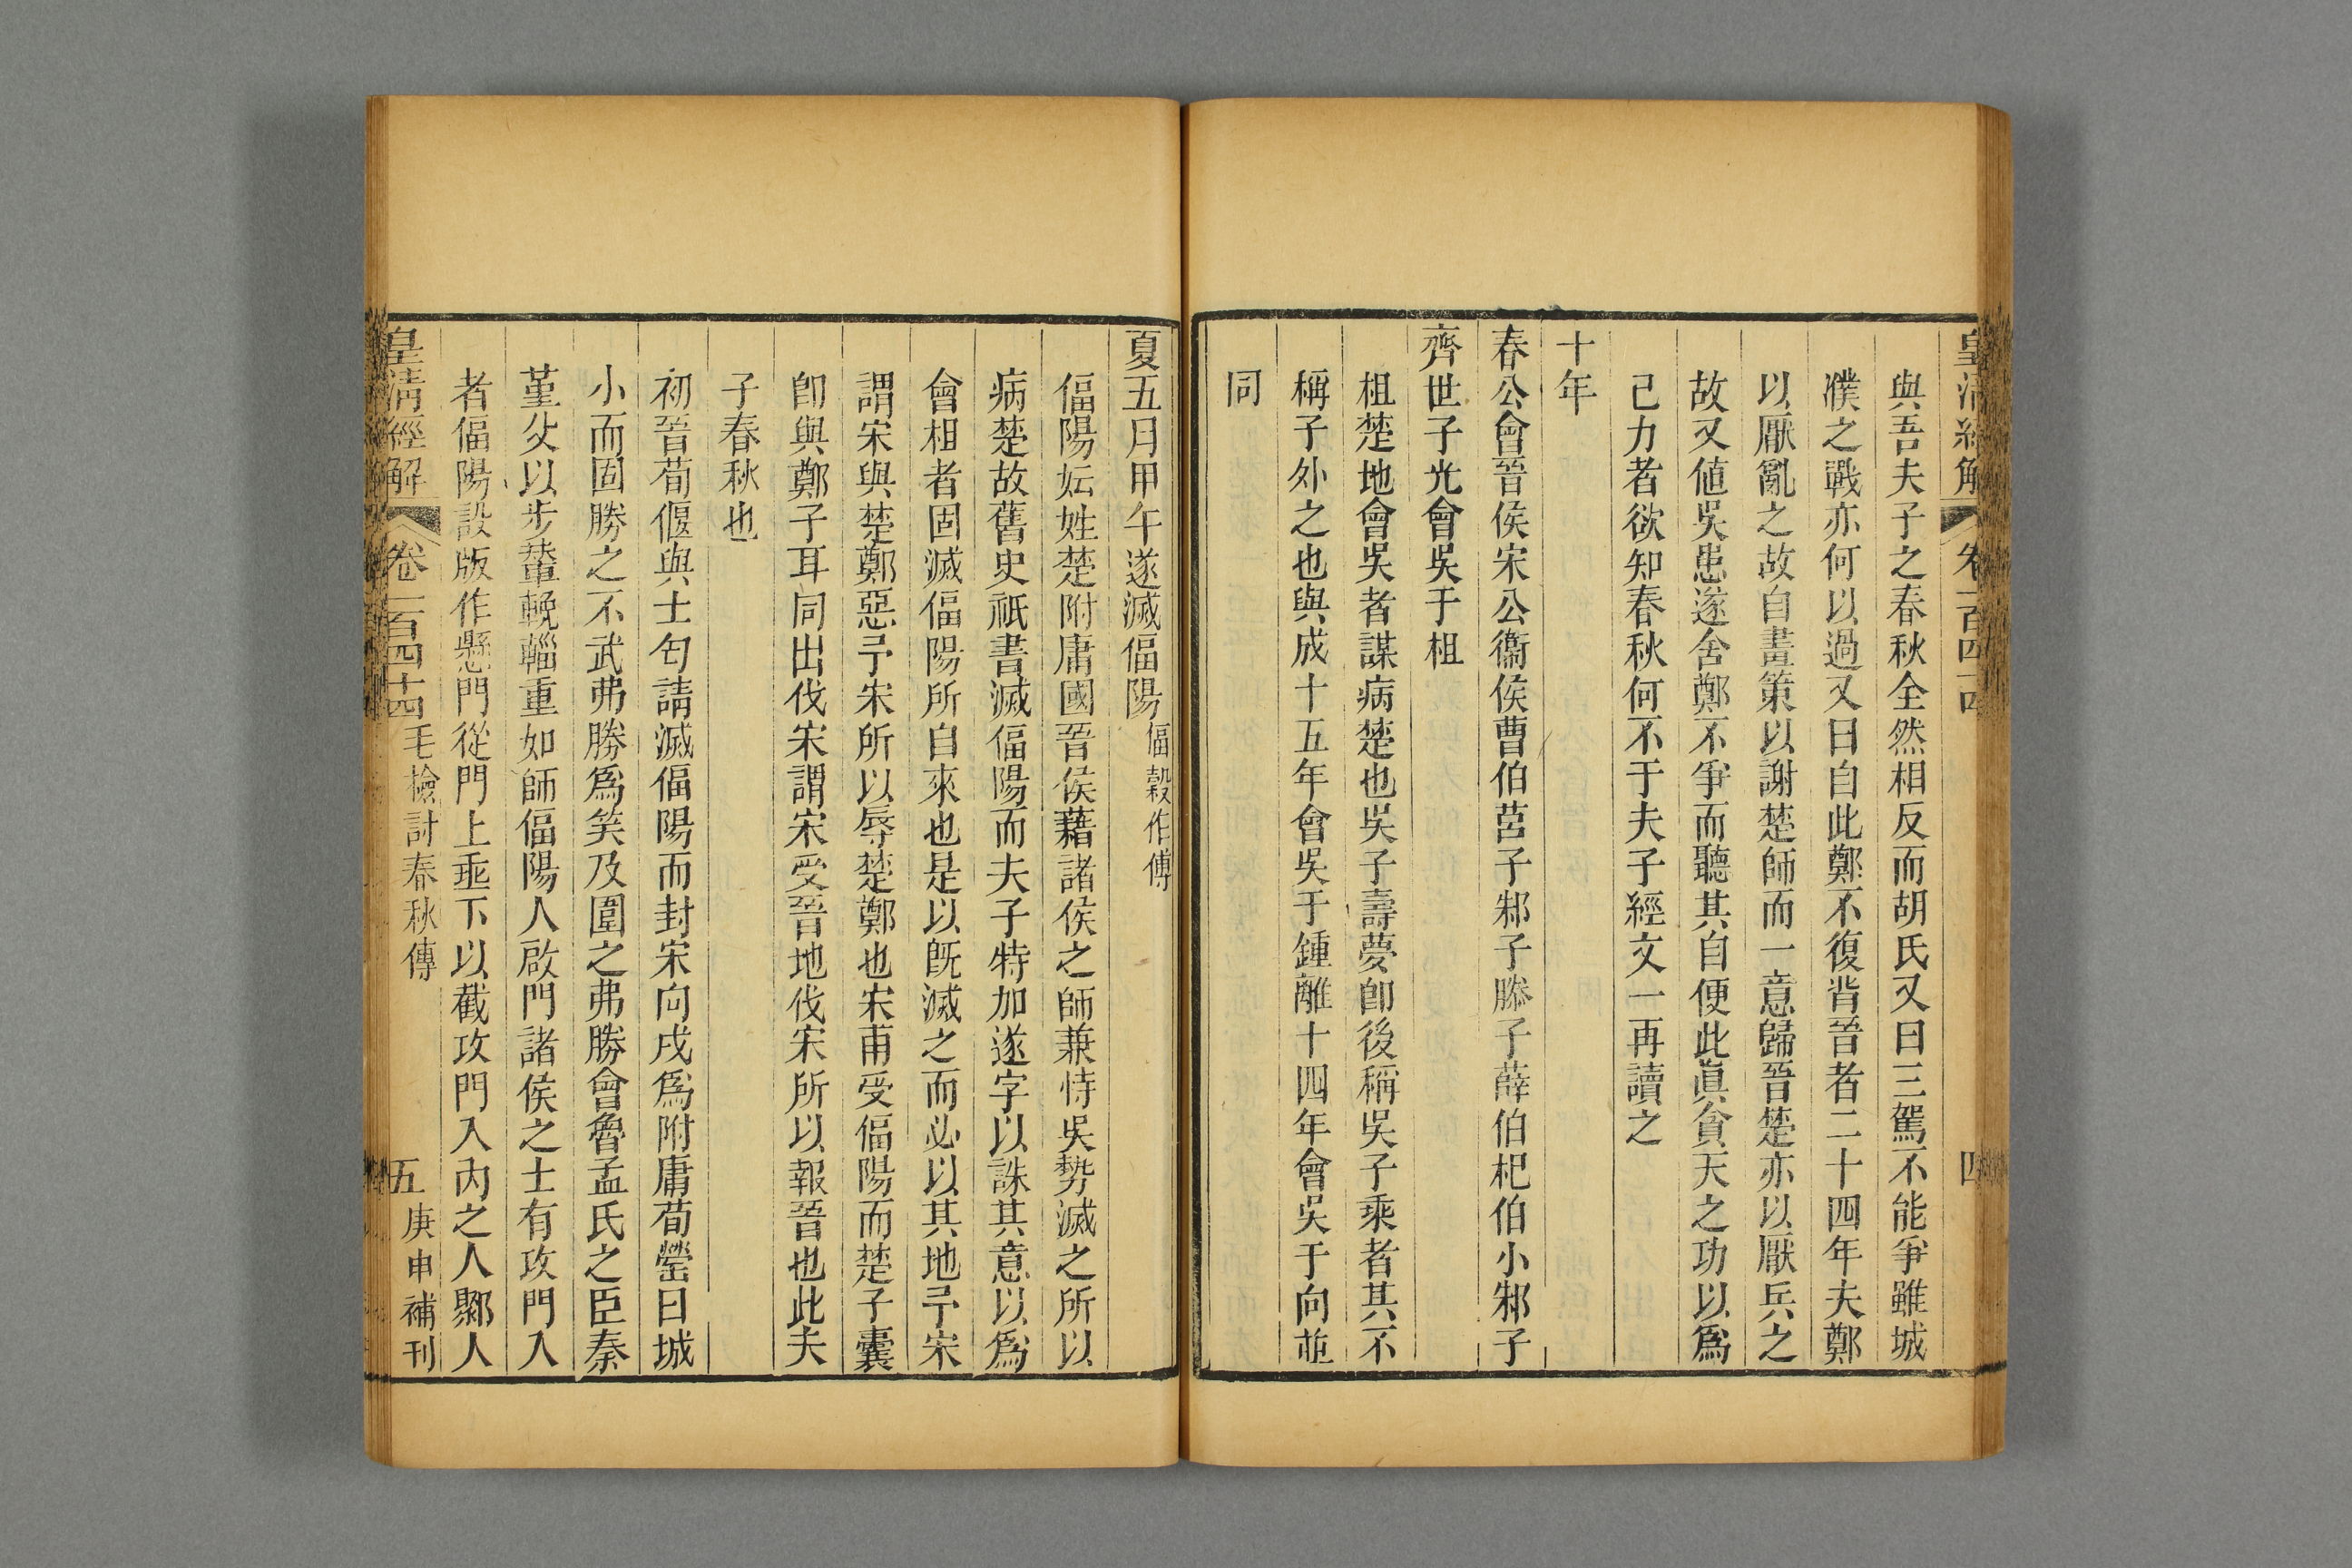 皇清經解 卷一百四十四 四
與吾夫子之春秋全然相反而胡氏又曰三駕不能爭雖城
濮之戰亦何以過又曰自此鄭不復背晉者二十四年夫鄭
以厭亂之故自畫策以謝楚師而一意歸晉楚亦以厭兵之
故又値吳患遂舍鄭不爭而聽其自便此眞貪天之功以爲
己力者欲知春秋何不于夫子經文一再讀之
十年
春公會晉侯宋公衞侯曹伯莒子邾子滕子薛伯杞伯小邾子
齊世子光會吳于柤
柤楚地會吳者謀病楚也吳子壽夢卽後稱吳子乘者其不
稱子外之也與成十五年會吳于鍾離十四年會吳于向並
同
夏五月甲午遂滅偪陽偪穀作傅
偪陽妘姓楚附庸國晉侯藉諸侯之師兼恃吳勢滅之所以
病楚故舊史祇書滅偪陽而夫子特加遂字以誅其意以爲
會柤者固滅偪陽所自來也是以旣滅之而必以其地予宋
謂宋與楚鄭惡予宋所以辱楚鄭也宋甫受偪陽而楚子囊
卽與鄭子耳同出伐宋謂宋受晉地伐宋所以報晉也此夫
子春秋也
初晉荀偃與士匄請滅偪陽而封宋向戌爲附庸荀罃曰城
小而固勝之不武弗勝爲笑及圍之弗勝會魯孟氏之臣秦
堇父以步輦輓輜重如師偪陽人啟門諸侯之士有攻門入
者偪陽設版作懸門從門上垂下以截攻門入內之人郰人
皇清經解 卷一百四十四 毛檢討春秋傳 五 庚申補刊